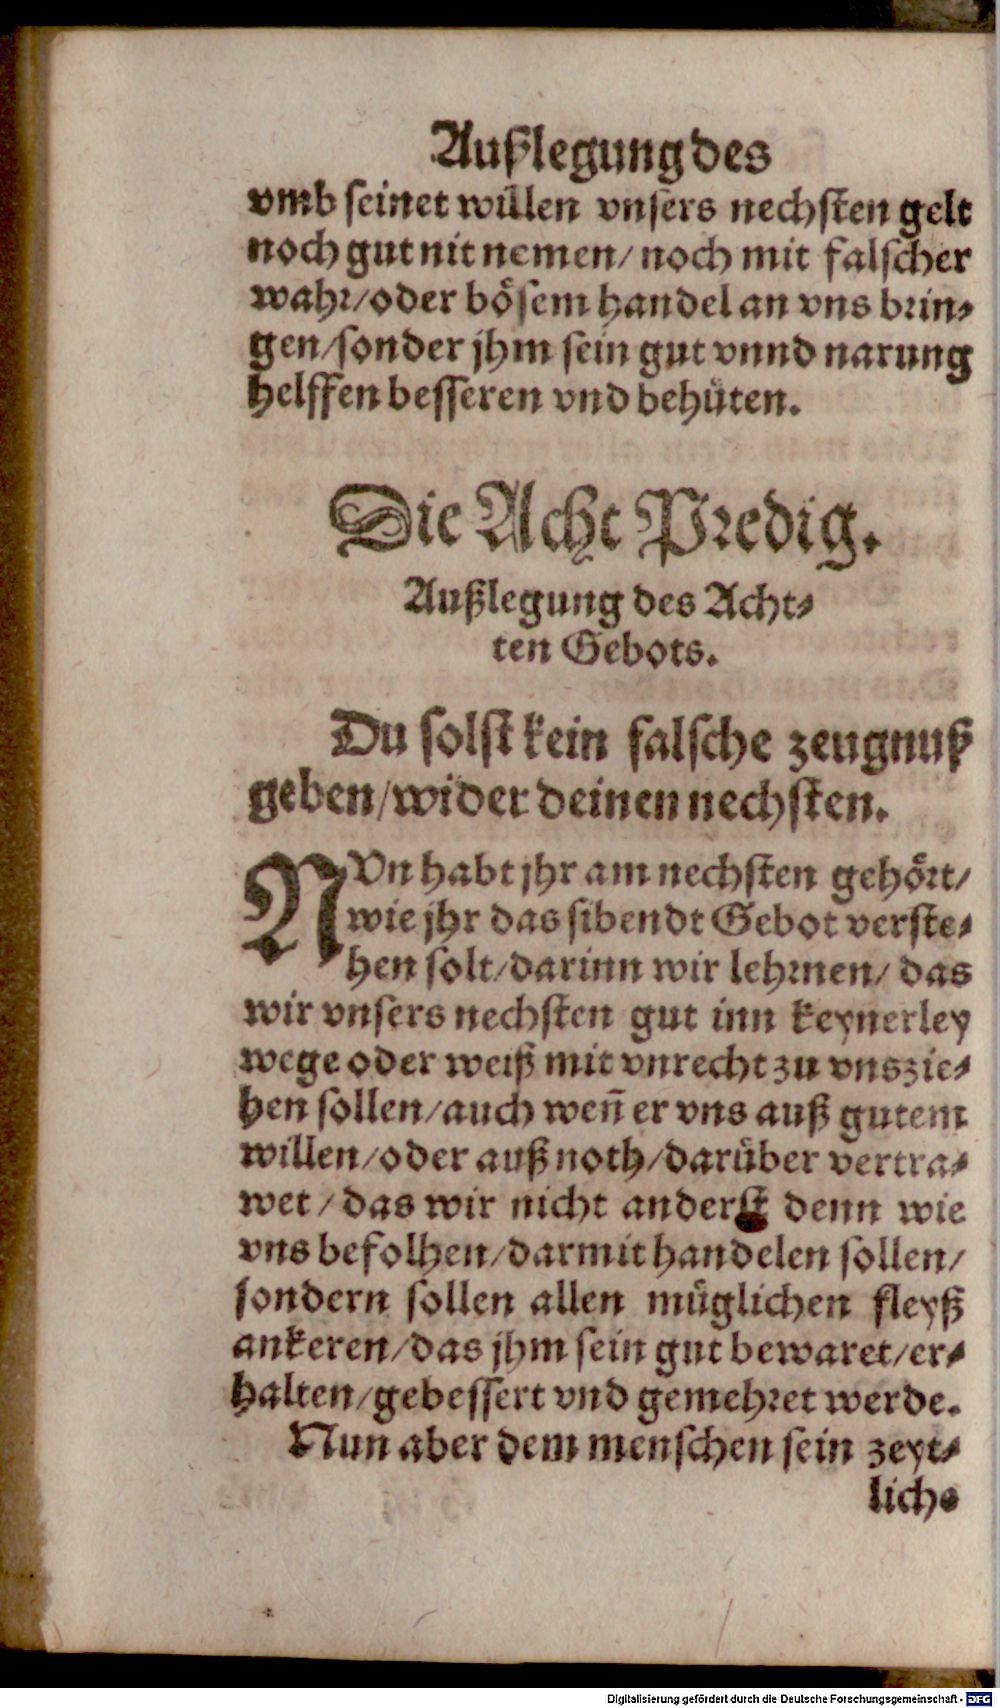 Außlegung des
vmb seinet willen vnsers nechsten gelt
noch gut nit nemen/ noch mit falscher
wahr/oder bösem handel an vns brin⸗
gen/sonder jhm sein gut vnnd narung
helffen besseren vnd behüten.
Die Acht Predig.
Außlegung des Acht⸗
ten Gebots.
Du solst kein falsche zeugnuß
geben/wider deinen nechsten.
NVn habt jhr am nechsten gehört/
wie jhr das sibendt Gebot verste⸗
hen solt/darinn wir lehrnen/ das
wir vnsers nechsten gut inn keynerley
wege oder weiß mit vnrecht zu vns zie⸗
hen sollen/auch weñ er vns auß gutem
willen/oder auß noth/darüber vertra⸗
wet / das wir nicht anderst denn wie
vns befolhen/darmit handelen sollen/
sondern sollen allen müglichen fleyß
ankeren/das jhm sein gut bewaret/er⸗
halten/gebessert vnd gemehret werde.
Nun aber dem menschen sein zeyt⸗
liche
Digitalisierung gefördert durch die Deutsche Forschungsgemeinschaft - DFG